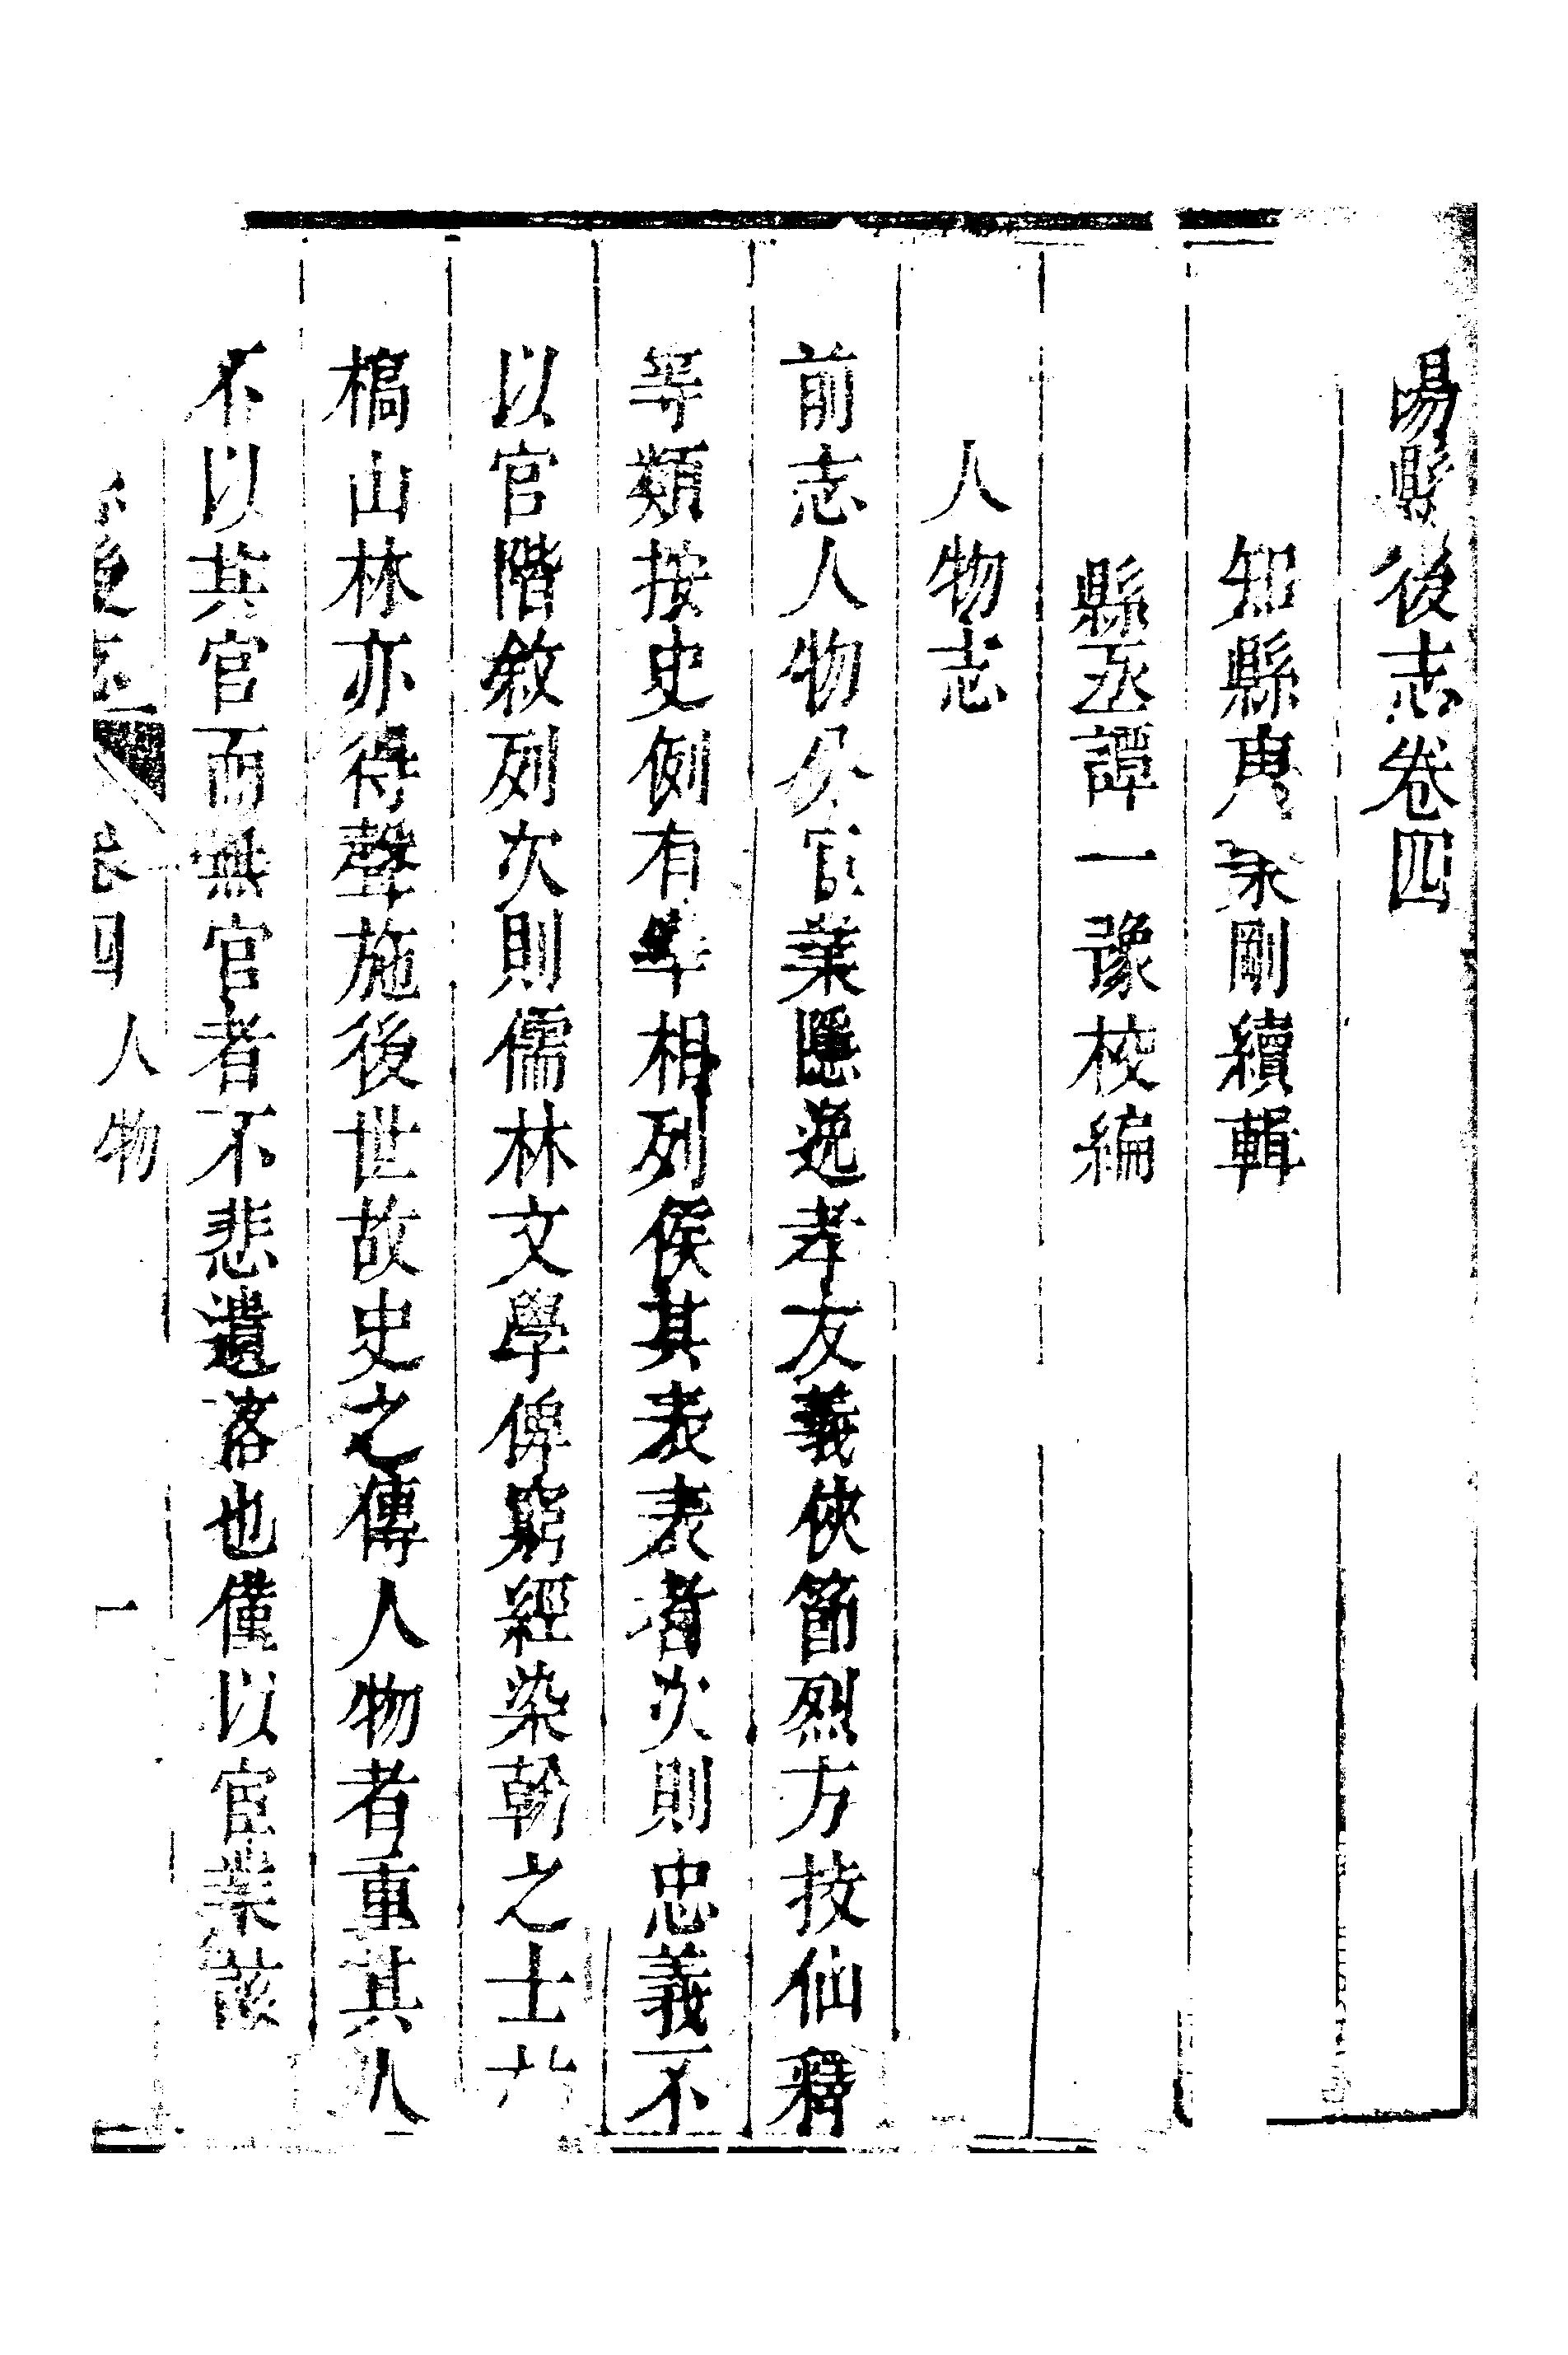 陽縣後志卷四
知縣束永剛續輯
縣丞譚一豫校編
人物志
前志人物分宦業隱逸孝友義俠節烈方技仙釋
等類按史例有宰相列侯其表表者次則忠義不
以官階敘列次則儒林文學俾窮經染翰之士
槁山林亦得聲施後世故史之傳人物者重其人
不以其官而無官者不悲遺落也僅以宦業該
後志
卷四 人物
一